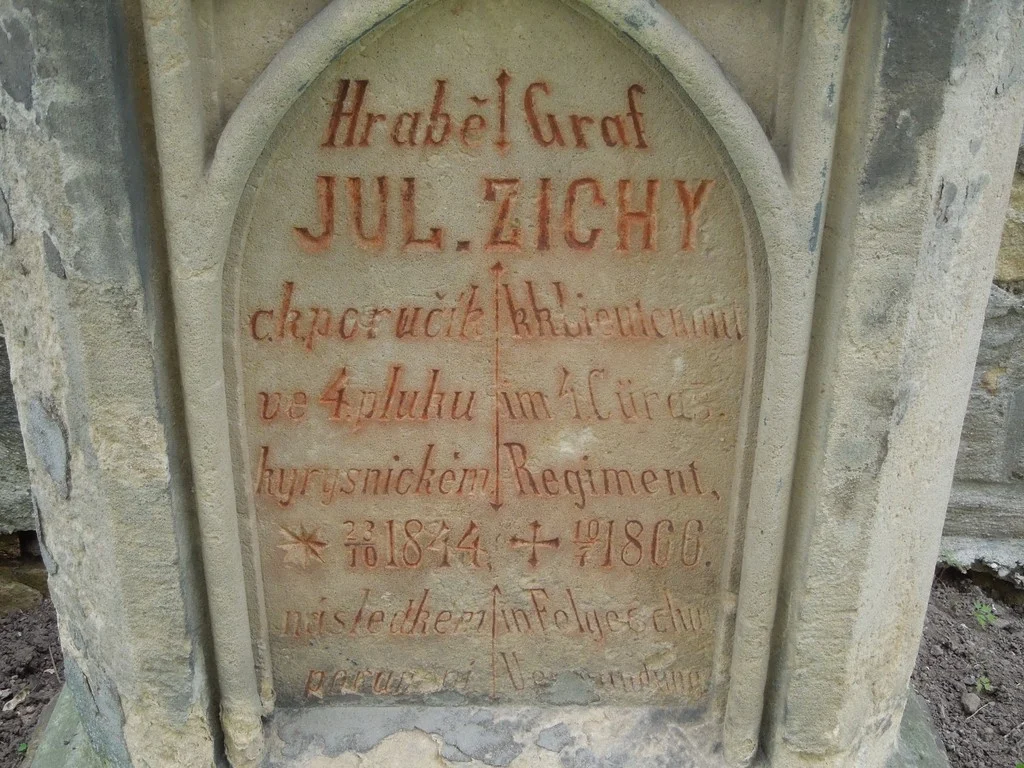 Hrabě Graf
JUL. ZICHY
c.k.poručík k.k.Lieutenant
ve 4.pluku im 4.Cüras.
kyrysnickém Regiment,
* 23/10 1844, + 10/7 1866.
následkem in Folge sch
poranění Verwundung